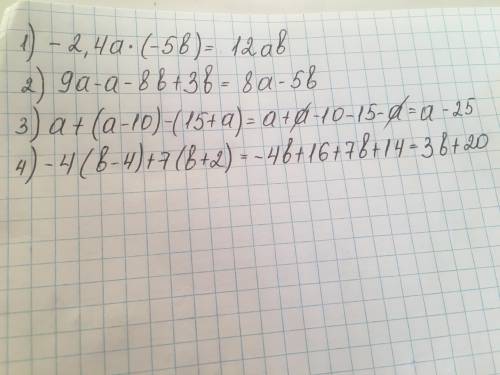 1) -2,4а·(-5в)= 12ав
2) 9а-а-8в+3в= 8а-5в
3) а+(а-10)-(15+а)=а+а-10-15-а=а-25
4) -4(в-4)+7(в+2)=-4в+16+7в+14=3в+20